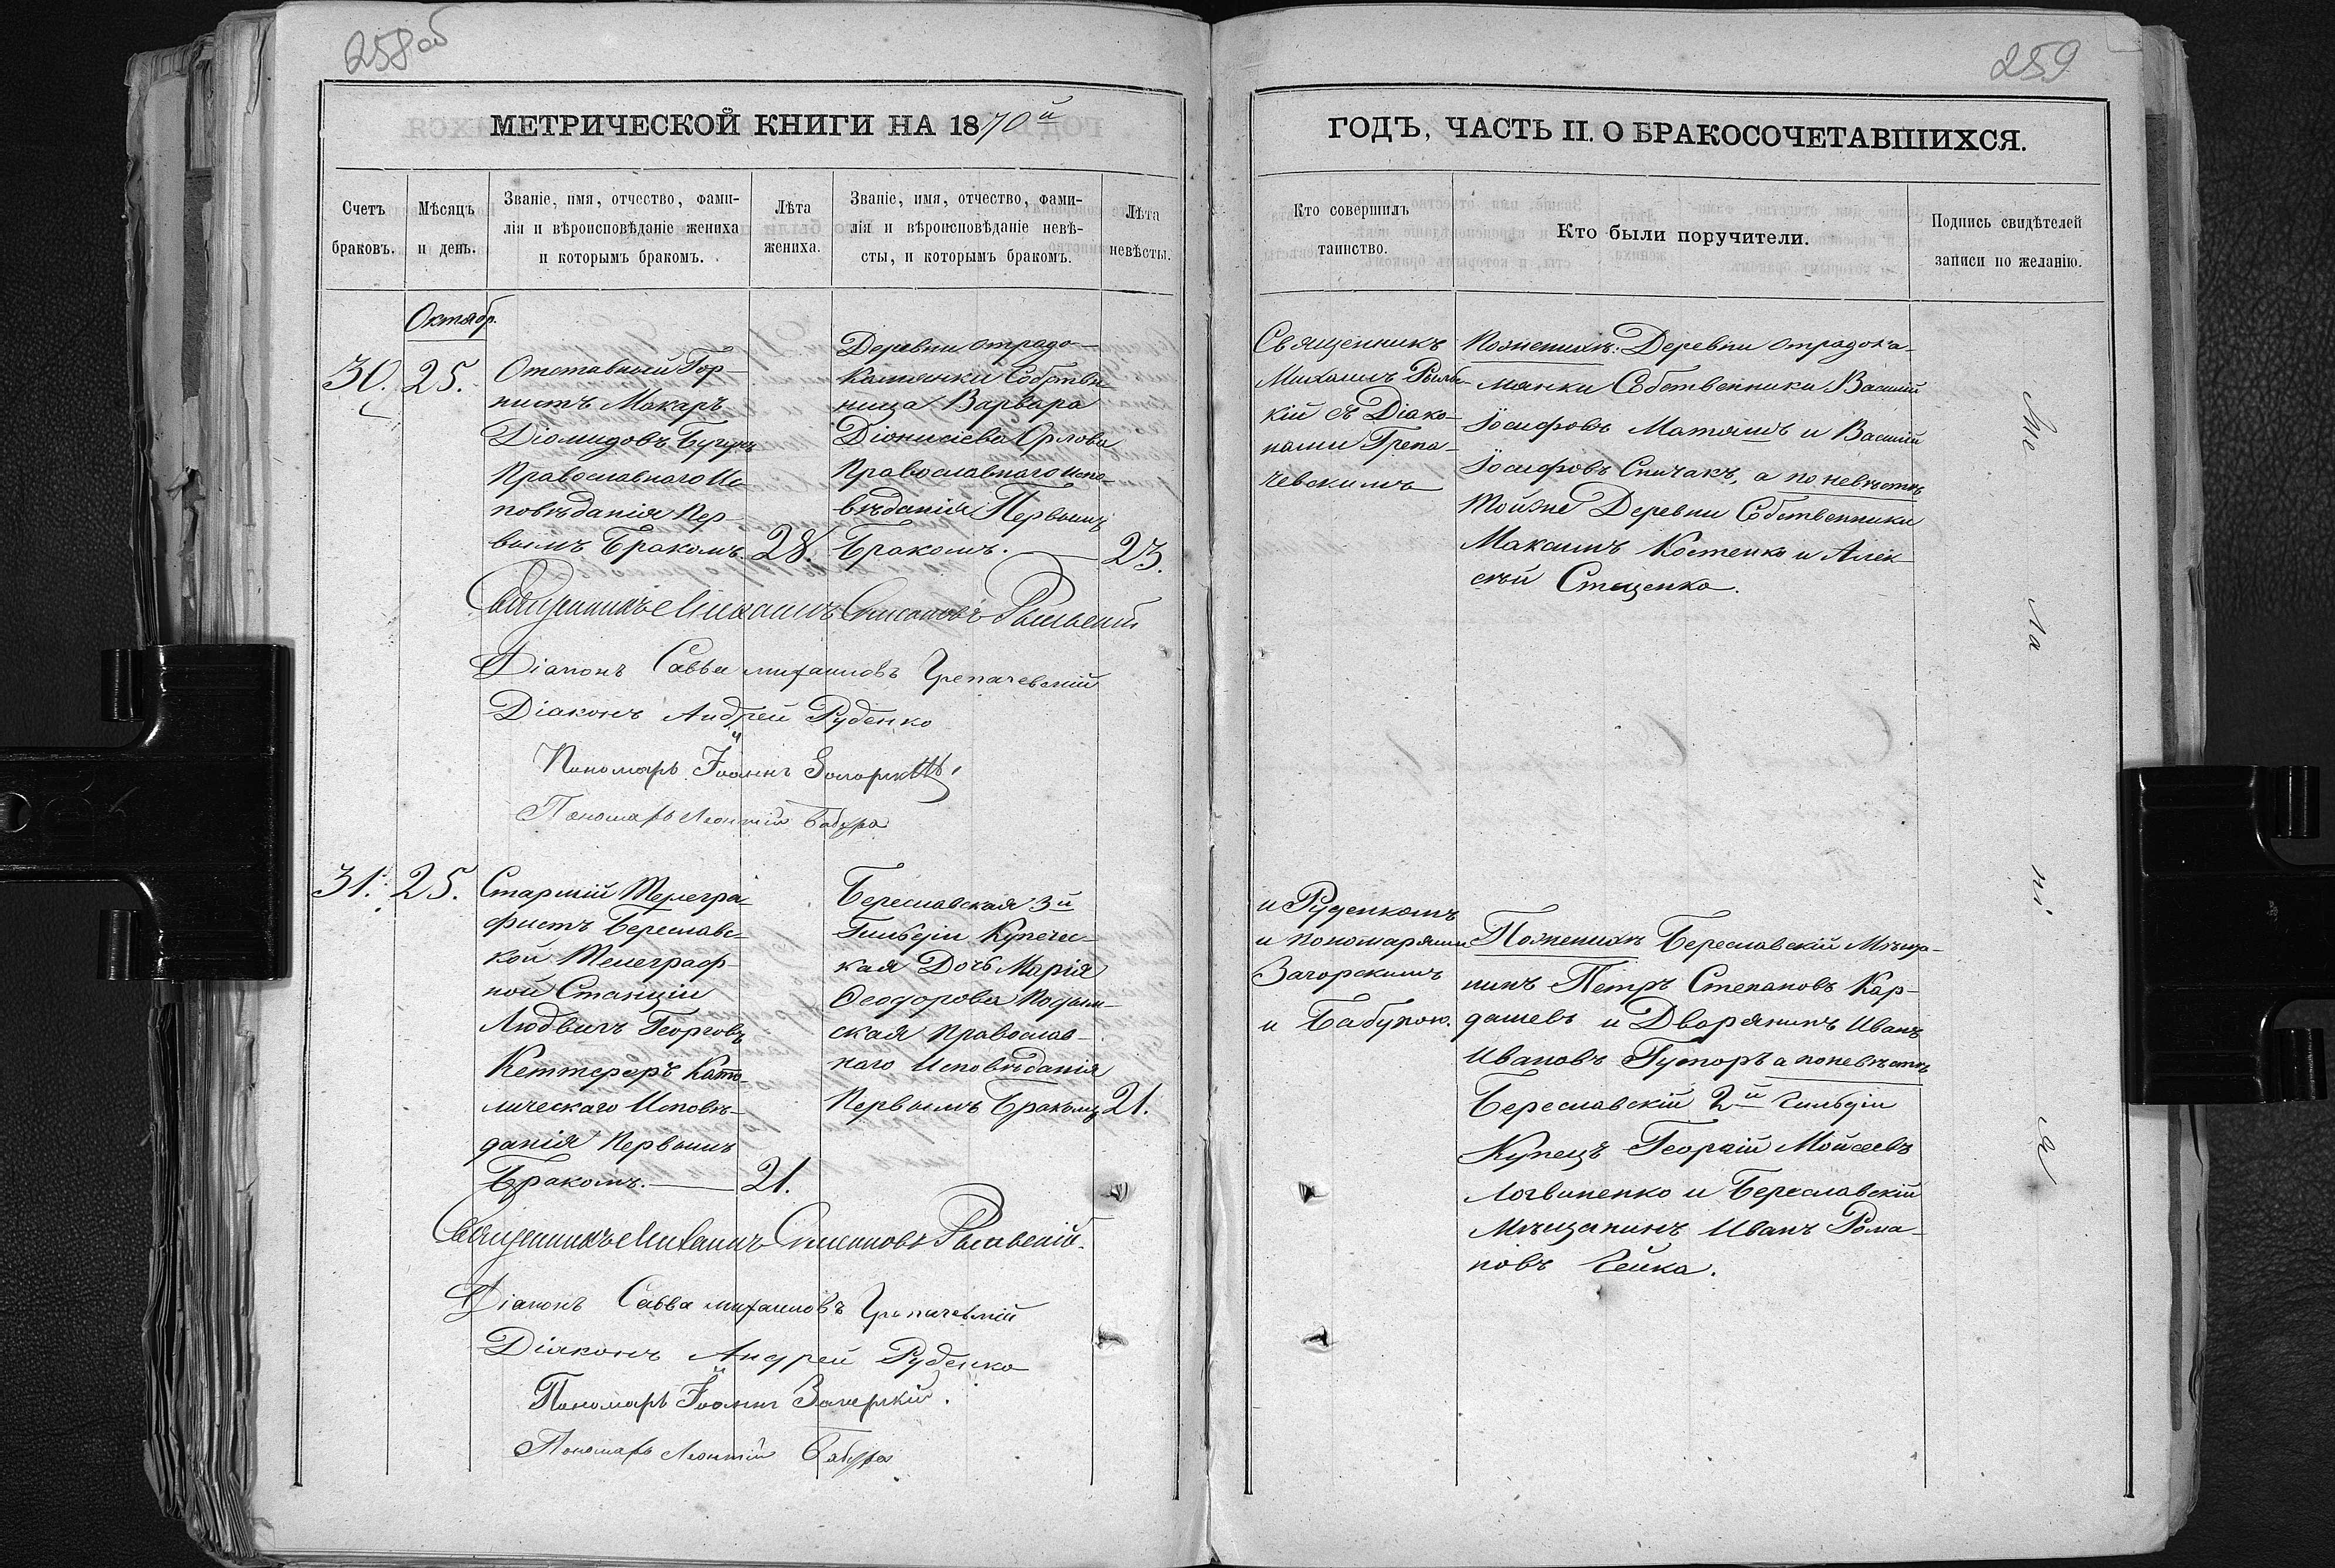 258об
МЕТРИЧЕСКОЙ КНИГИ НА 1870й
Счетъ браковъ.
Мѣсяцъ и день.
Званіе, имя, отчество, фами-
ліи и вѣроисповѣданіе жениха
и которымъ бракомъ.
Лѣта жениха.
Званіе, имя, отчество, фами-
ліи и вѣроисповѣданіе невѣ-
сты, и которымъ бракомъ.
Лѣта невѣсты.
Октябр.
30.
25.
Отставный Гор-
нистъ Макаръ
Діомидовъ
Православнаго Ис-
повѣданія Пер-
вымъ Бракомъ. 28.
Деревни Отрадо-
Каменки Собствен-
ница Варвара
Діонисіева Орлова
Православнаго Испо-
вѣданія Первымъ
Бракомъ. 23.
Священникъ Михаилъ
Діаконъ Савва Михаиловъ
Діаконъ Андрей Руденко
Пономарь Іоаннъ Загорскій
Пономарь Леонтій Бабура
31.
25.
Старшій Телегра-
фистъ Береславс-
кой Телеграф-
ной Станціи
Людвигъ Георговъ
Кеттереръ Като-
лическаго Исповѣ-
данія Первымъ
Бракомъ. 21.
Береславская 3й
Гильдіи Купечес-
кая Дочь Марія
Ѳеодорова
ская Православ-
наго Исповѣданія
Первымъ Бракомъ 21.
Священникъ Михаилъ
Діаконъ Савва Михаиловъ
Діаконъ Андрей Руденко
Пономарь Іоаннъ Загорскій.
Пономарь Леонтій Бабура
259
ГОДЪ, ЧАСТЬ II. О БРАКОСОЧЕТАВШИХСЯ.
Кто совершилъ таинство.
Кто были поручители.
Подпись свидѣтелей
записи по желанію.
Священникъ
Михаилъ
кій съ Діако-
нами Грепа-
чевскимъ
Поженихѣ: Деревни Отрадока-
менки Собственники Василій
Іосифовъ и Василій
Іосифовъ Спичакъ, а по невѣстѣ
тойже Деревни Собственники
Максимъ Костенко и Алек-
сѣй Стеценко.
и Руденкомъ
и пономарями
Загорскимъ
и Бабурою.
Поженихѣ Береславскій Мѣща-
нинъ Петръ Степановъ Кар-
дашевъ и Дворянинъ Иванъ
Ивановъ Гуторъ а поневѣстѣ
Береславскій 2й Гильдіи
Купецъ Георгій Мойсеевъ
Логвиненко и Береславскій
Мѣщанинъ Иванъ Рома-
новъ Гейка.